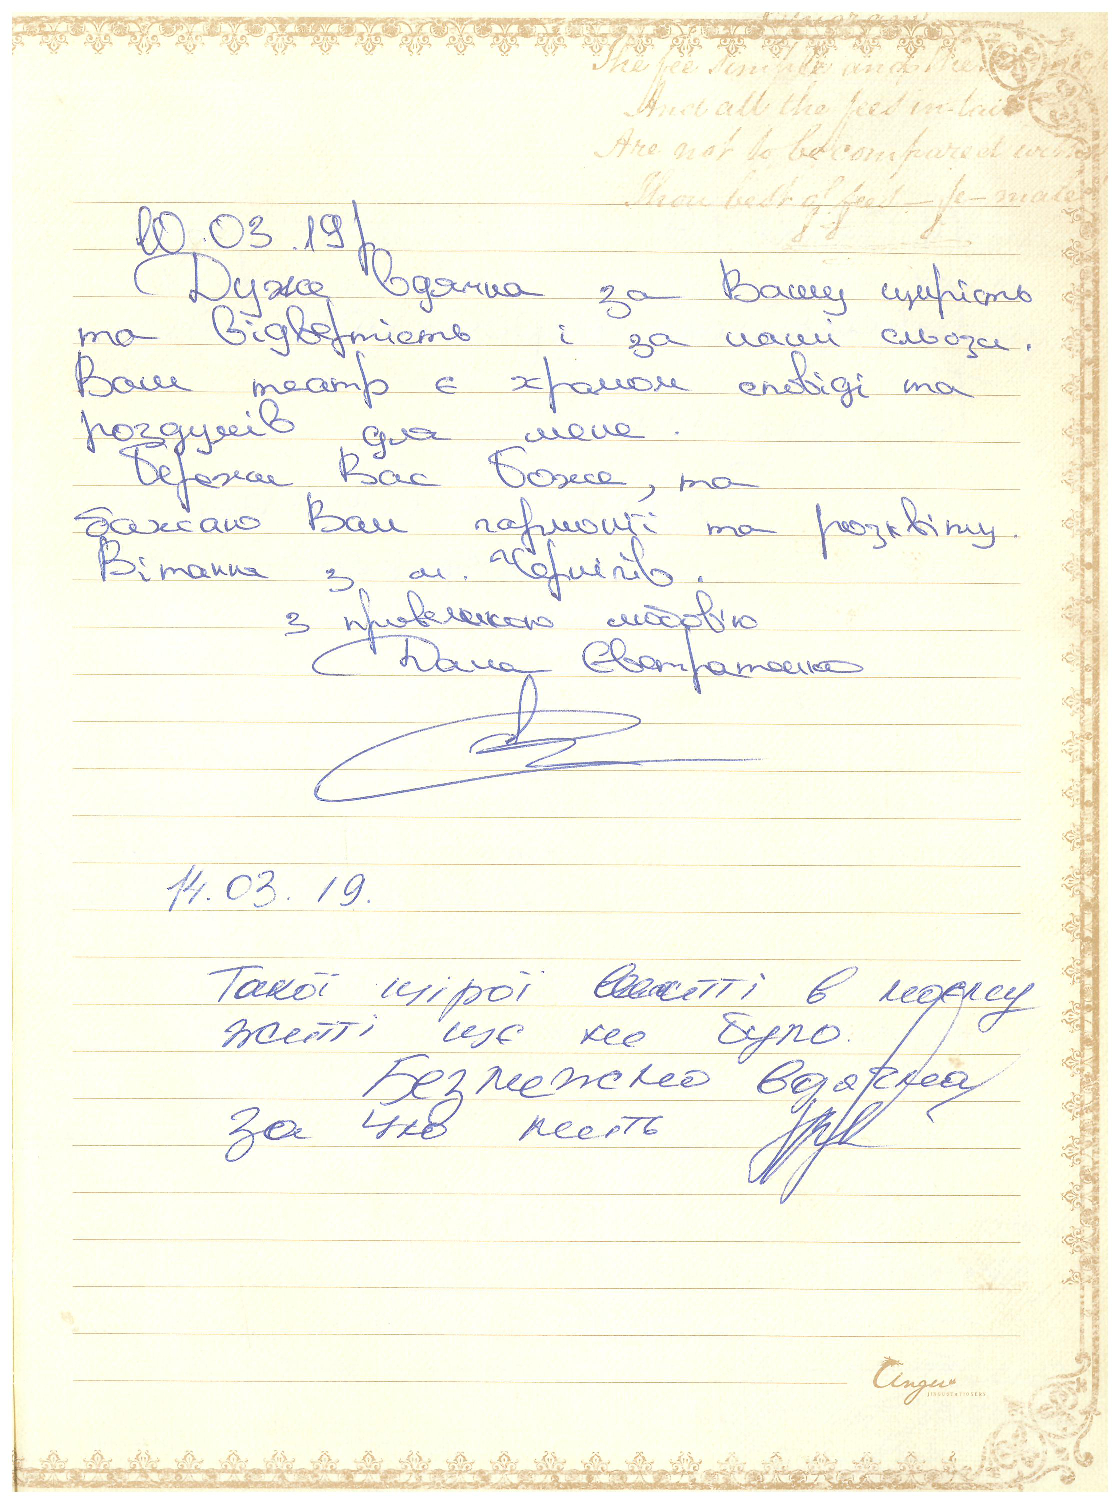 The fee simple and the
And all the fees in-tail
Are not to be compared with
Thou best of fees — fe-male
10.03.19р
Дуже вдячна за Вашу щирість
та відвертість і за наші сльози.
Ваш театр є храмом сповіді та
роздумів для мене.
Бережи Вас Боже, та
бажаю Вам гармонії та розквіту.
Вітання з м. Чернігів.
з превеликою любов'ю
Дана Євтратенко
14.03.19.
Такої щирої миті в моєму
житті ще не було.
Безмежно вдячна
за цю мить
Angel
JINSUSTATIONERS